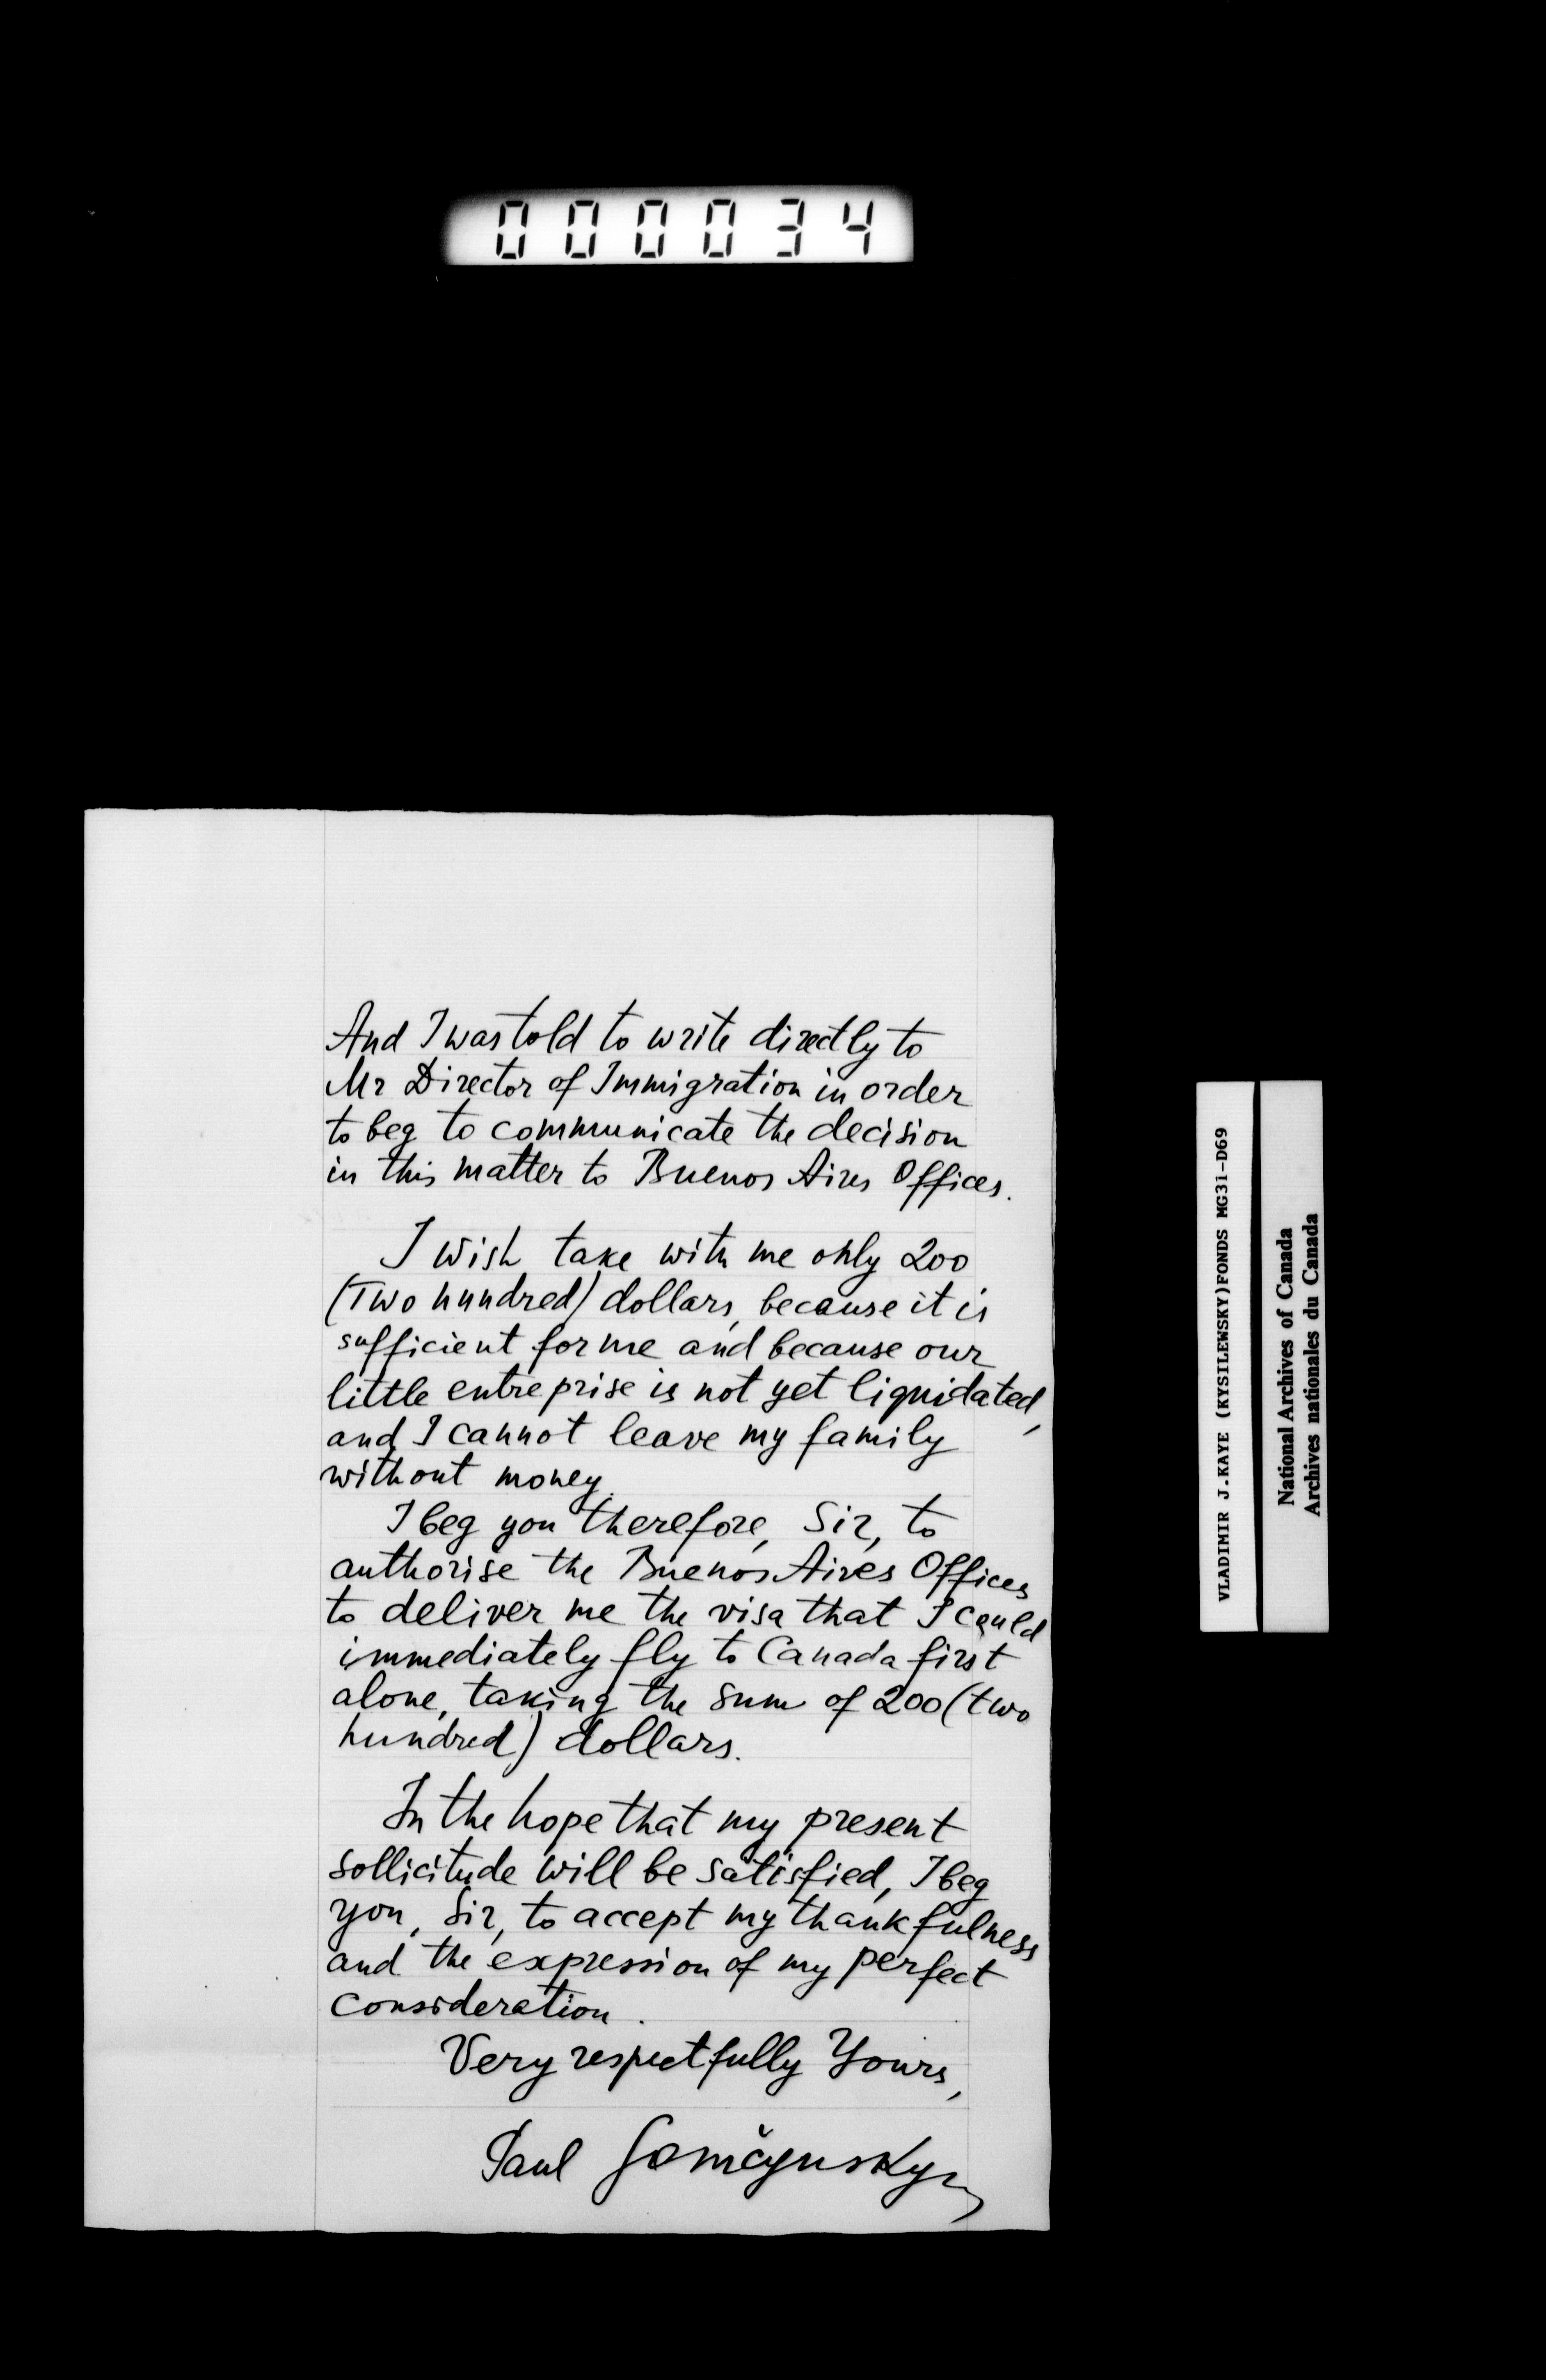 000034
And I was told to write directly to
Mr Director of Immigration in order
to beg to communicate the decision
in this matter to Buenos Aires Offices.
I wish take with me only 200
(Two hundred) dollars, because it is
sufficient for me and because our
little entreprise is not yet liquidated,
and I cannot leave my family
without money.
I beg you therefore, Sir, to
authorise the Buenos Aires Offices
to deliver me the visa that I could
immediately fly to Canada first
alone, taking the sum of 200 (two
hundred) dollars.
In the hope that my present
sollicitude will be satisfied, I beg
you, Sir, to accept my thankfulness
and the expression of my perfect
consideration.
Very respectfully Yours,
Paul
VLADIMIR J.KAYE (KYSILEWSKY)FONDS MG31-D69
National Archives of Canada
Archives nationales du Canada